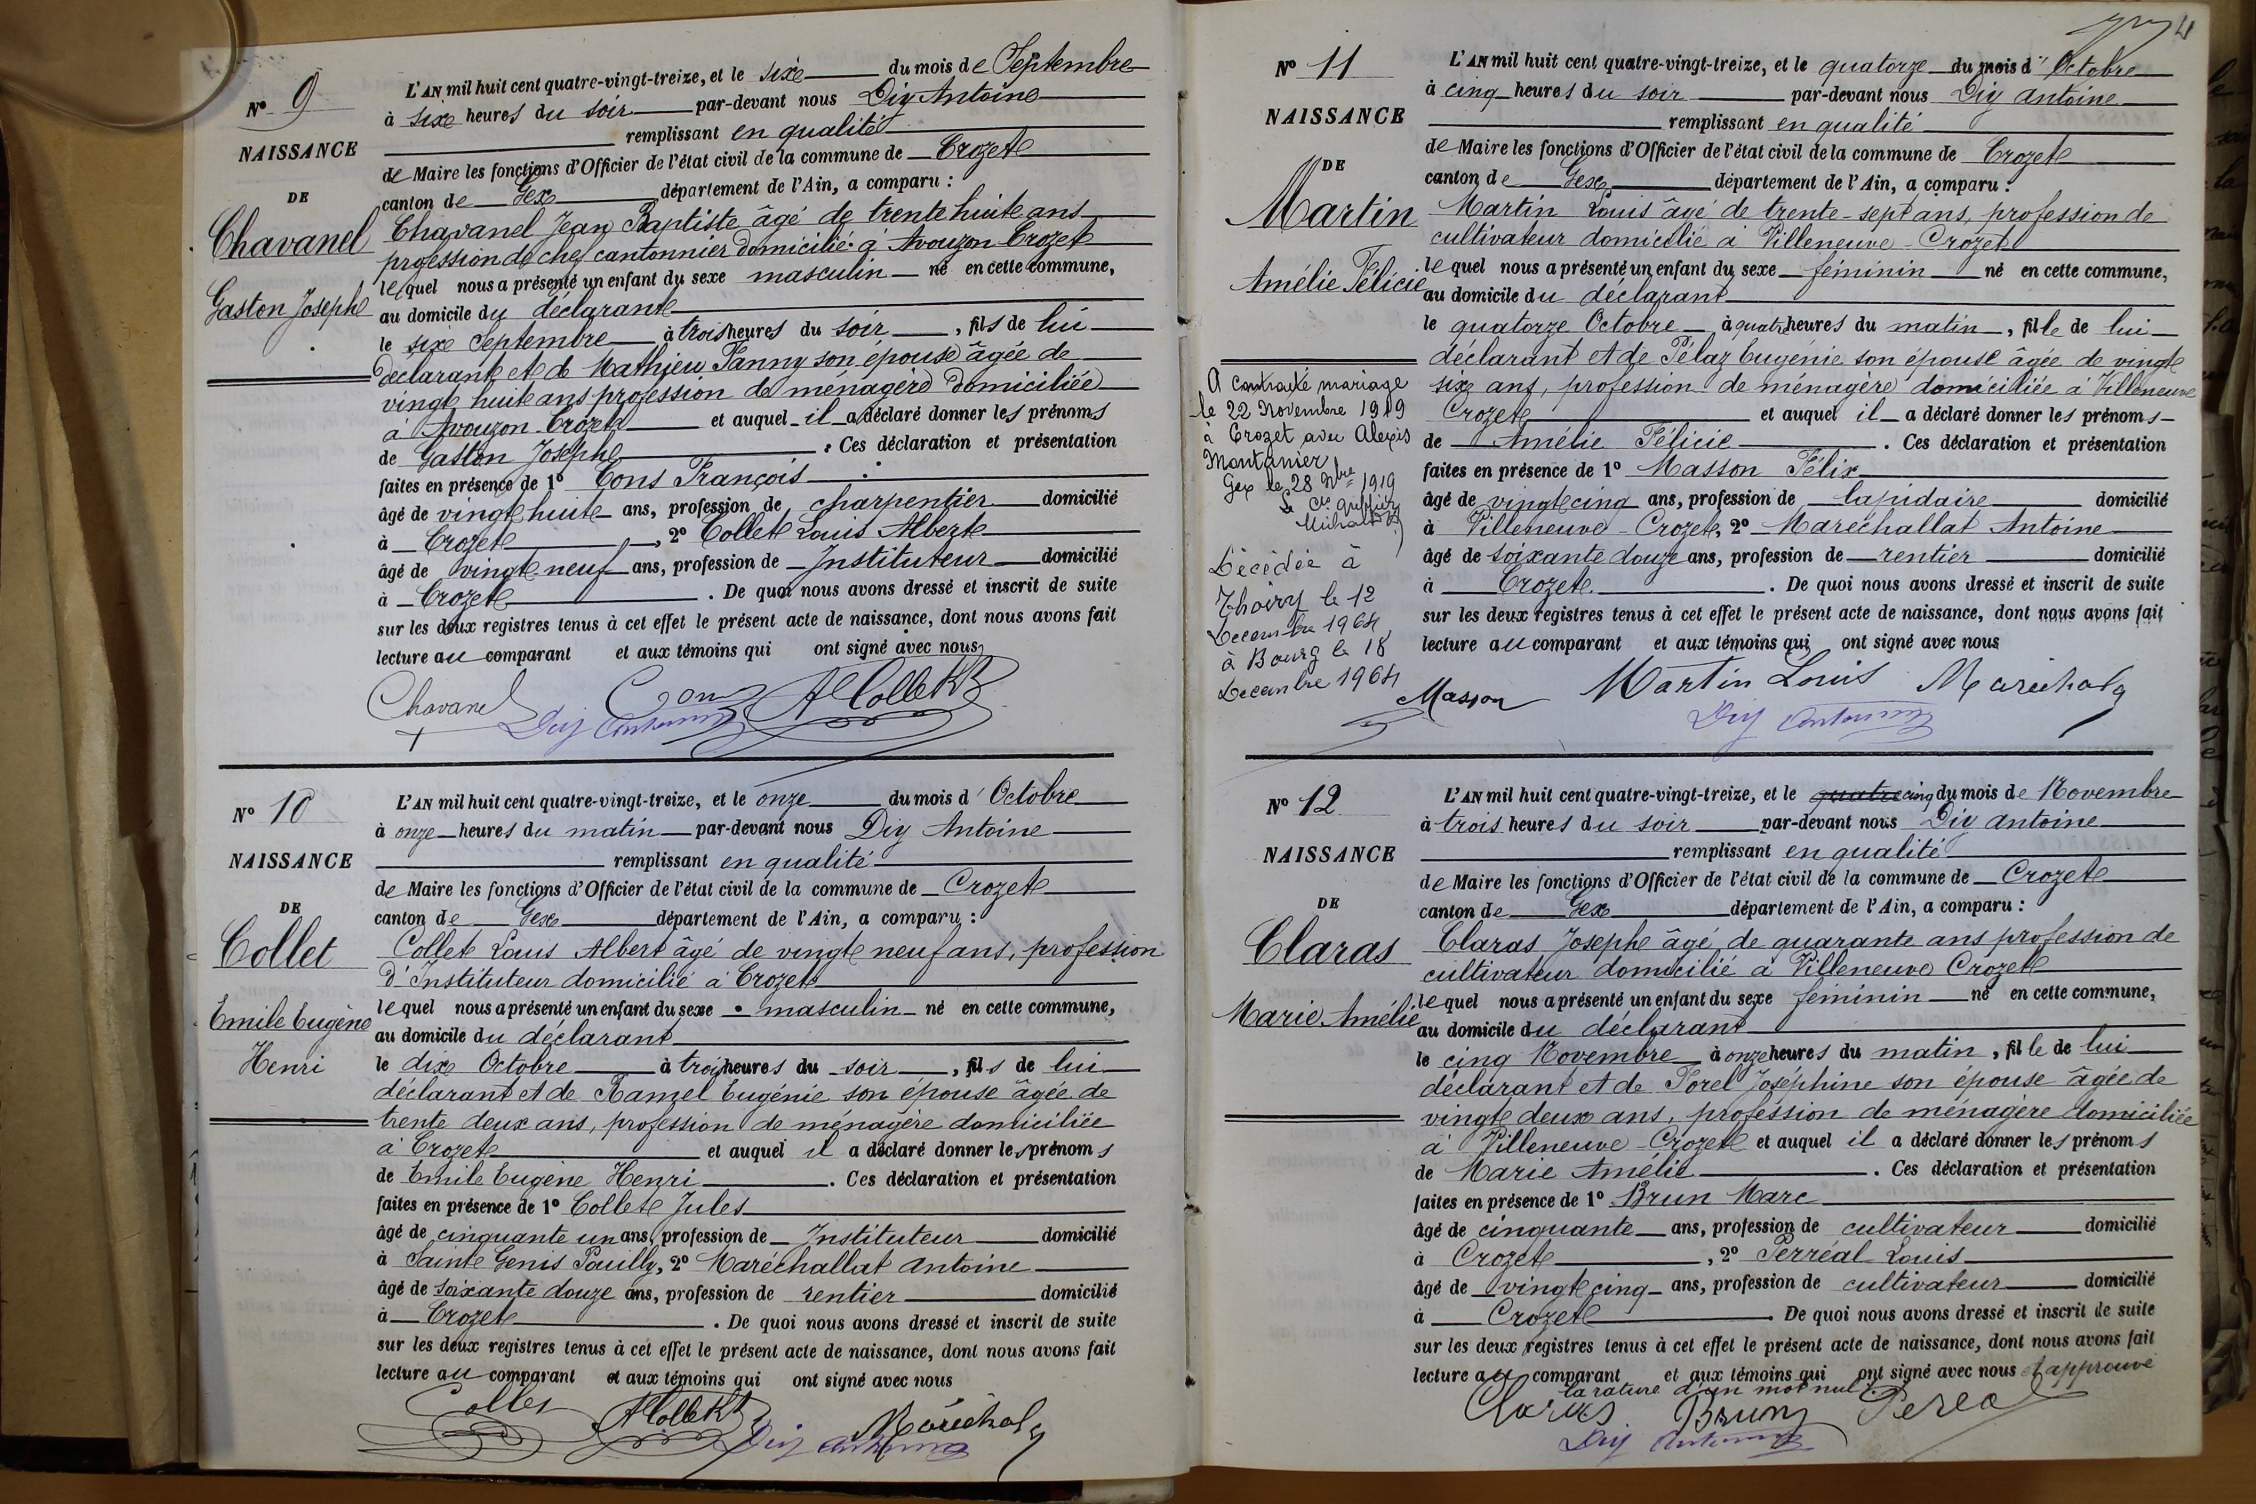 N° 9
NAISSANCE
DE
Chavanel
Gaston Josephe
L'AN mil huit cent quatre-vingt-treize, et le sixe du mois de Septembre
à sixe heures du soir par-devant nous Diy Antoine
remplissant en qualité
de Maire les fonctions d'Officier de l'état civil de la commune de Crozet
canton de Gex département de l'Ain, a comparu :
Chavanel Jean Baptiste âgé de trente huit ans
profession de chef cantonnier domicilié à Avouzon Crozet
lequel nous a présenté un enfant du sexe masculin né en cette commune,
au domicile du déclarant
le sixe Septembre à trois heures du soir , fils de lui
déclarant et de Mathieu Fanny son épouse âgée de
vingt huit ans profession de ménagère domiciliée
à Avouzon Crozet et auquel il a déclaré donner les prénoms
de Gaston Josephe . Ces déclaration et présentation
faites en présence de 1° Cons François
âgé de vingt huit ans, profession de charpentier domicilié
à Crozet , 2° Collet Louis Albert
âgé de vingt neuf ans, profession de Instituteur domicilié
à Crozet . De quoi nous avons dressé et inscrit de suite
sur les deux registres tenus à cet effet le présent acte de naissance, dont nous avons fait
lecture au comparant et aux témoins qui ont signé avec nous
Chavanel Cons A Collet
Diy Antoine
N° 10
NAISSANCE
DE
Collet
Emile Eugène
Henri
L'AN mil huit cent quatre-vingt-treize, et le onze du mois d'Octobre
à onze heures du matin par-devant nous Diy Antoine
remplissant en qualité
de Maire les fonctions d'Officier de l'état civil de la commune de Crozet
canton de Gex département de l'Ain, a comparu :
Collet Louis Albert âgé de vingt neuf ans, profession
d'Instituteur domicilié à Crozet
lequel nous a présenté un enfant du sexe masculin né en cette commune,
au domicile du déclarant
le dix Octobre à trois heures du soir , fils de lui
déclarant et de Ramel Eugénie son épouse âgée de
trente deux ans, profession de ménagère domiciliée
à Crozet et auquel il a déclaré donner les prénoms
de Emile Eugène Henri . Ces déclaration et présentation
faites en présence de 1° Collet Jules
âgé de cinquante un ans, profession de Instituteur domicilié
à Sainte Genis Pouilly, 2° Maréchallat Antoine
âgé de soixante douze ans, profession de rentier domicilié
à Crozet . De quoi nous avons dressé et inscrit de suite
sur les deux registres tenus à cet effet le présent acte de naissance, dont nous avons fait
lecture au comparant et aux témoins qui ont signé avec nous
Collet A Collet Maréchala
Diy Antoine
4
N° 11
NAISSANCE
DE
Martin
Amélie Félicie
A contracté mariage
le 22 Novembre 1919
à Crozet avec Alexis
Montanier
Gex le 28 Nbre 1919
Le Cis Greffier
Décédée à
Thoiry le 12
Decembre 1964
à Bourg le 18
Decembre 1964
L'AN mil huit cent quatre-vingt-treize, et le quatorze du mois d'Octobre
à cinq heures du soir par-devant nous Diy Antoine
remplissant en qualité
de Maire les fonctions d'Officier de l'état civil de la commune de Crozet
canton de Gex département de l'Ain, a comparu :
Martin Louis âgé de trente-sept ans, profession de
cultivateur domicilié à Villeneuve-Crozet
lequel nous a présenté un enfant du sexe féminin né en cette commune,
au domicile du déclarant
le quatorze Octobre à quatre heures du matin , fille de lui
déclarant et de Pélaz Eugénie son épouse âgée de vingt
six ans, profession de ménagère domiciliée à Villeneuve
Crozet et auquel il a déclaré donner les prénoms
de Amélie Félicie . Ces déclaration et présentation
faites en présence de 1° Masson Félix
âgé de vingt cinq ans, profession de lapidaire domicilié
à Villeneuve-Crozet, 2° Maréchallat Antoine
âgé de soixante douze ans, profession de rentier domicilié
à Crozet . De quoi nous avons dressé et inscrit de suite
sur les deux registres tenus à cet effet le présent acte de naissance, dont nous avons fait
lecture au comparant et aux témoins qui ont signé avec nous
Masson Martin Louis Maréchala
Diy Antoine
N° 12
NAISSANCE
DE
Claras
Marie Amélie
L'AN mil huit cent quatre-vingt-treize, et le quatre cinq du mois de Novembre
à trois heures du soir par-devant nous Diy Antoine
remplissant en qualité
de Maire les fonctions d'Officier de l'état civil de la commune de Crozet
canton de Gex département de l'Ain, a comparu :
Claras Josephe âgé de quarante ans profession de
cultivateur domicilié à Villeneuve Crozet
lequel nous a présenté un enfant du sexe féminin né en cette commune,
au domicile du déclarant
le cinq Novembre à onze heures du matin , fille de lui
déclarant et de Forel Joséphine son épouse âgée de
vingt deux ans, profession de ménagère domiciliée
à Villeneuve-Crozet et auquel il a déclaré donner les prénoms
de Marie Amélie . Ces déclaration et présentation
faites en présence de 1° Brun Marc
âgé de cinquante ans, profession de cultivateur domicilié
à Crozet , 2° Perréal Louis
âgé de vingt cinq ans, profession de cultivateur domicilié
à Crozet . De quoi nous avons dressé et inscrit de suite
sur les deux registres tenus à cet effet le présent acte de naissance, dont nous avons fait
lecture au comparant et aux témoins qui ont signé avec nous et approuvé
la rature d'un mot nul.
Claras Brun Pereal
Diy Antoine